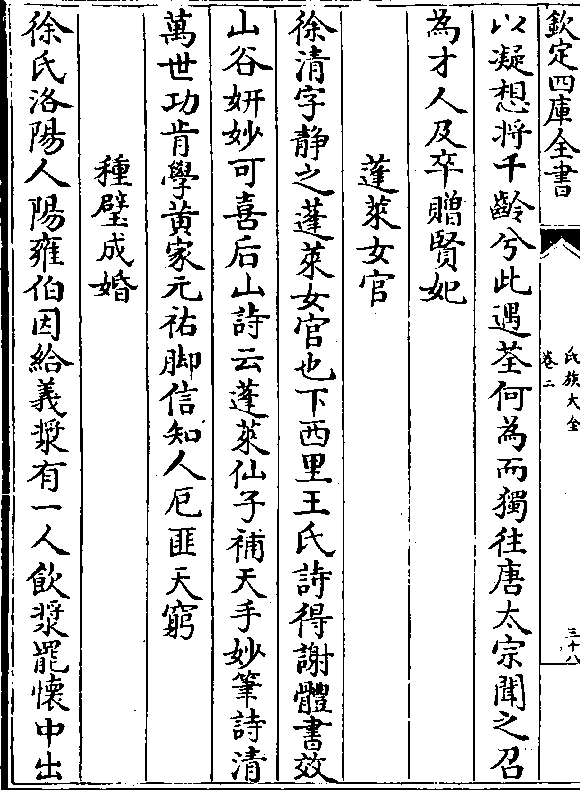 欽定四庫全書
氏族大全
卷二
三十八
以凝想將千齡兮此遇荃何為而獨往唐太宗聞之召
為才人及卒贈賢妃
蓬萊女官
徐清字静之蓬萊女官也下西里王氏詩得謝體書效
山谷妍妙可喜后山詩云蓬萊仙子補天手妙筆詩清
萬世功肯學黄家元祐脚信知人厄匪天窮
種璧成婚
徐氏洛陽人陽雍伯因給義漿有一人飲漿罷懷中出